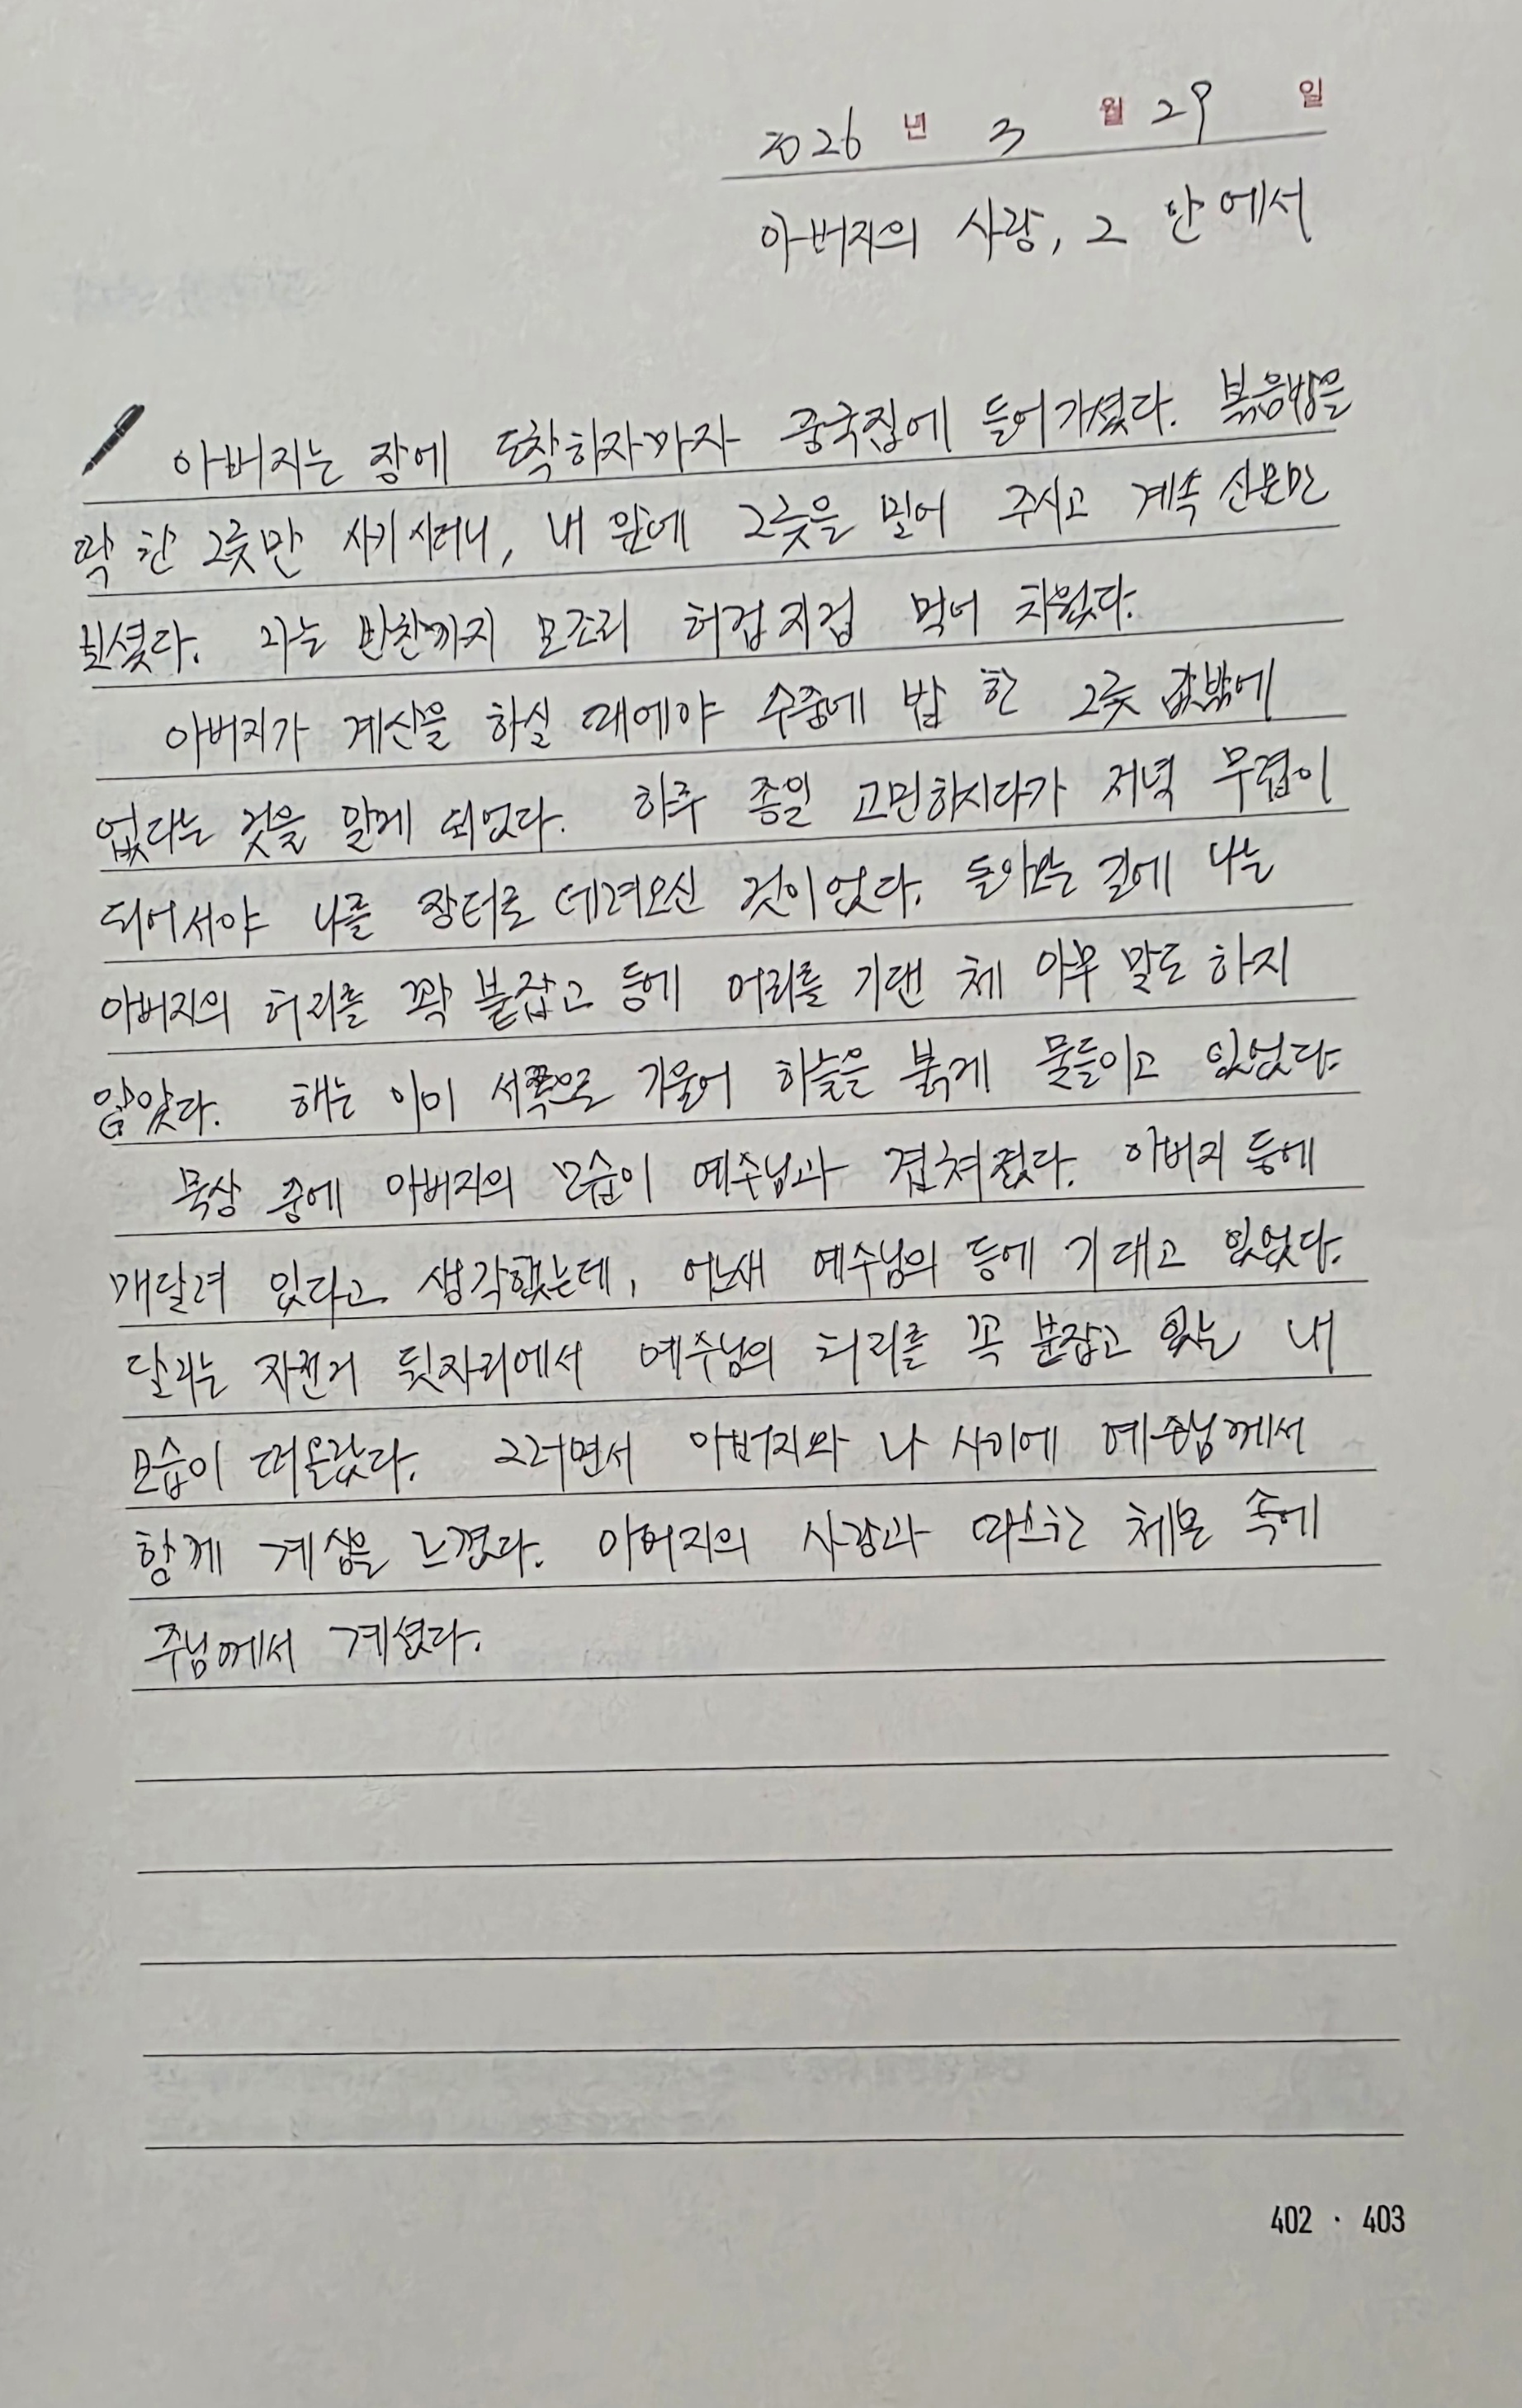 2026 년 3 월 29 일
아버지의 사랑, 그 안에서
아버지는 장에 도착하자마자 중국집에 들어가셨다. 볶음밥을
딱 한 그릇만 시키시더니, 내 앞에 그릇을 밀어 주시고 계속 신문만
보셨다. 나는 반찬까지 모조리 허겁지겁 먹어 치웠다.
아버지가 계산을 하실 때에야 수중에 밥 한 그릇 값밖에
없다는 것을 알게 되었다. 하루 종일 고민하시다가 저녁 무렵이
되어서야 나를 장터로 데려오신 것이었다. 돌아오는 길에 나는
아버지의 허리를 꽉 붙잡고 등에 머리를 기댄 체 아무 말도 하지
않았다. 해는 이미 서쪽으로 기울어 하늘을 붉게 물들이고 있었다.
묵상 중에 아버지의 모습이 예수님과 겹쳐졌다. 아버지 등에
매달려 있다고 생각했는데, 어느새 예수님의 등에 기대고 있었다.
달리는 자전거 뒷자리에서 예수님의 허리를 꼭 붙잡고 있는 내
모습이 떠올랐다. 그러면서 아버지와 나 사이에 예수님께서
함께 계심을 느꼈다. 아버지의 사랑과 따스한 체온 속에
주님께서 계셨다.
402 · 403